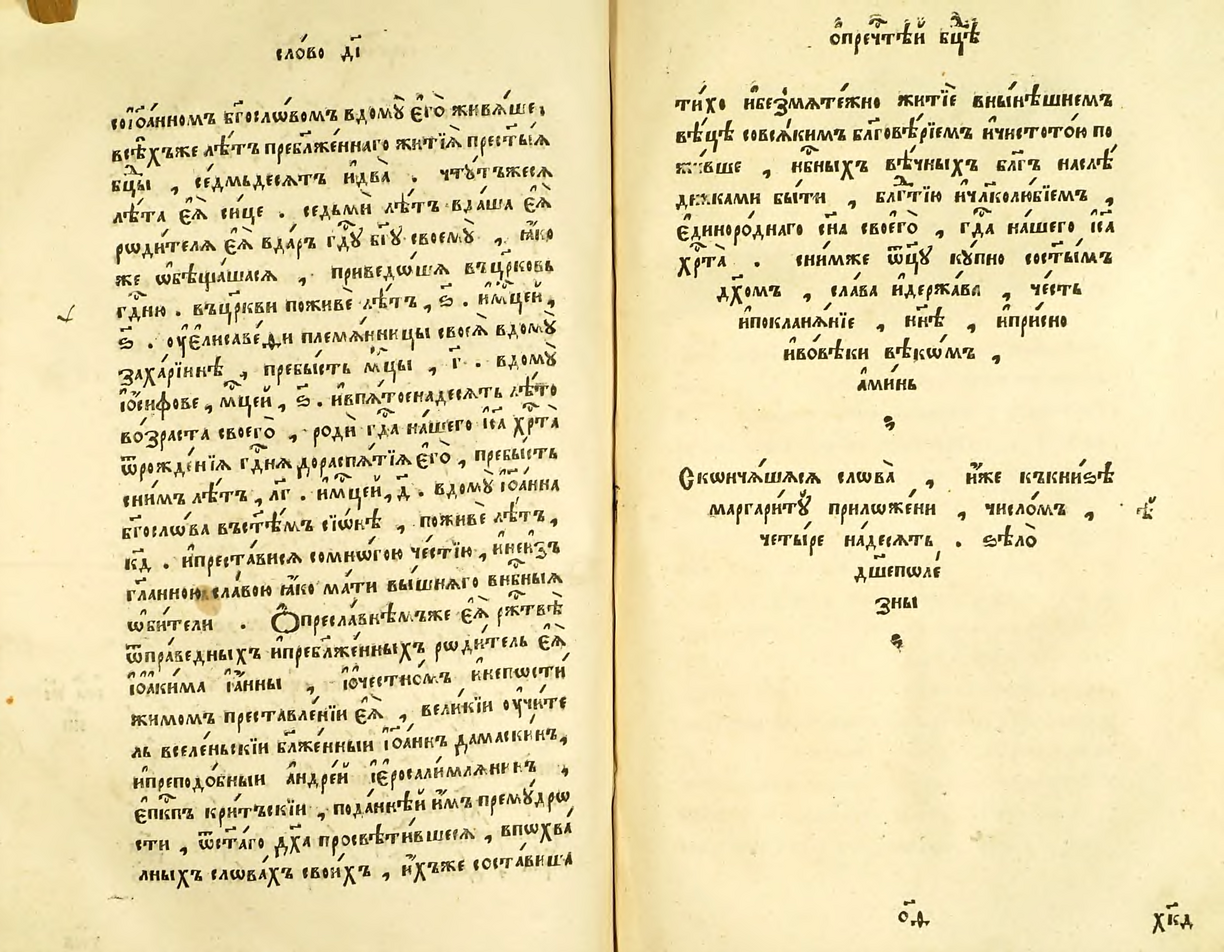 сло́во д҃і
соіѡа́нномъ бг҃осло́вомъ вдомꙋ̀ є҆гѡ̀ живѧ́ше,
всѣ́хъже лѣ́тъ преблаже́ннаго житїѧ̀ прест҃ы́ѧ
бц҃ы , се́дмьдесѧтъ и҆два̀ . чтꙋ́тъжесѧ
лѣ́та є҆ѧ̀ си́це . седьми лѣ́тъ вда́ша є҆ѧ̀
рѡди́телѧ є҆ѧ̀ вда́ръ гд҇ꙋ бг҃ꙋ своемꙋ̀ , ꙗ҆́ко
же ѡ҆бѣща́шасѧ , приведѡ́шѧ въцр҃ковь
гд҇ню . въцр҃кви поживѐ лѣ́тъ , ѕ҃ . и҆мц҇ей ,
ѕ҃ . оу҆є҆лисаве́ѳи племѧ́нницы своеѧ̀ вдомꙋ̀
заха́рїиннѣ , пребы́сть мц҇ы , г҃ . вдомꙋ̀
і҆ѡ́сифове , мц҇ей , ѕ҃ . и҆впѧ́тоенадесѧть лѣ́то
во́зраста своегѡ̀ , родѝ гд҇а на́шего і҆с҃а хр҇та̀
ѿрожде́нїѧ гд҇нѧ дораспѧ́тїѧ є҆гѡ̀ , пребы́сть
сни́мъ лѣ́тъ , лг҃ . и҆мц҇ей , д҃ . вдомꙋ̀ і҆ѡа́нна
бг҃осло́ва въст҃ѣ́мъ сїѡ́нѣ , поживѐ лѣ́тъ ,
кд҃ . и҆преста́висѧ сомно́гою че́стїю , и҆неи҆з̾
гл҃анною сла́вою ꙗ҆́ко ма́ти вы́шнѧго внбн҃ыѧ
ѡ҆би́тели . Ѻ҆пресла́внѣмъже є҆ѧ̀ рж҇твѣ̀
ѿпра́ведныхъ и҆преблаже́нныхъ рѡди́тель є҆ѧ̀
і҆ѡаки́ма і҆а҆́нны , і҆ѡ҆че́стномъ и҆непости́
жимомъ преставле́нїи є҆ѧ̀ , вели́кїи оу҆чи́те
ль вселе́ньскїи бл҃же́нныи і҆ѡа́ннъ дамаски́нъ,
и҆преподо́бныи а҆ндре́й і҆єросали́млѧнинъ ,
є҆пк҇пъ кри́тьскїи , пода́ннѣй и҆́мъ премꙋ́дрѡ
сти , ѿст҃а́го дх҃а просвѣти́вшесѧ , впѡхва́
лныхъ слѡва́хъ свои́хъ , и҆́хъже соста́виша
ѡ҆преч҇тѣй бц҃ѣ
ти́хо и҆безмѧте́жно житїѐ вны́нѣшнемъ
вѣ́цѣ совсѧ́кимъ бл҃говѣ́рїемъ и҆чистото́ю по
жи́вше , и҆нбн҃ыхъ вѣ́чныхъ бл҃гъ наслѣ́
дниками бы́ти , бл҃гд҇тїю и҆чл҃колю́бїемъ ,
є҆диноро́днаго сн҃а своегѡ̀ , гд҇а на́шего і҆с҃а
хр҇та̀ . сни́мже ѿц҃ꙋ кꙋ́пно сост҃ы́мъ
дх҃омъ , сла́ва и҆держа́ва , че́сть
и҆покланѧ́нїе , нн҃ѣ , и҆при́сно
и҆во́вѣки вѣко́мъ ,
а҆ми́нь
Скѡнча́шасѧ словѐса , и҆́же ккни́ѕѣ
маргари́тꙋ приложе́ни , число́мъ ,
четы́ре на́десѧть . ѕѣлѡ̀
дш҃епѡле́
зны
о҃ѳ
хк҃д